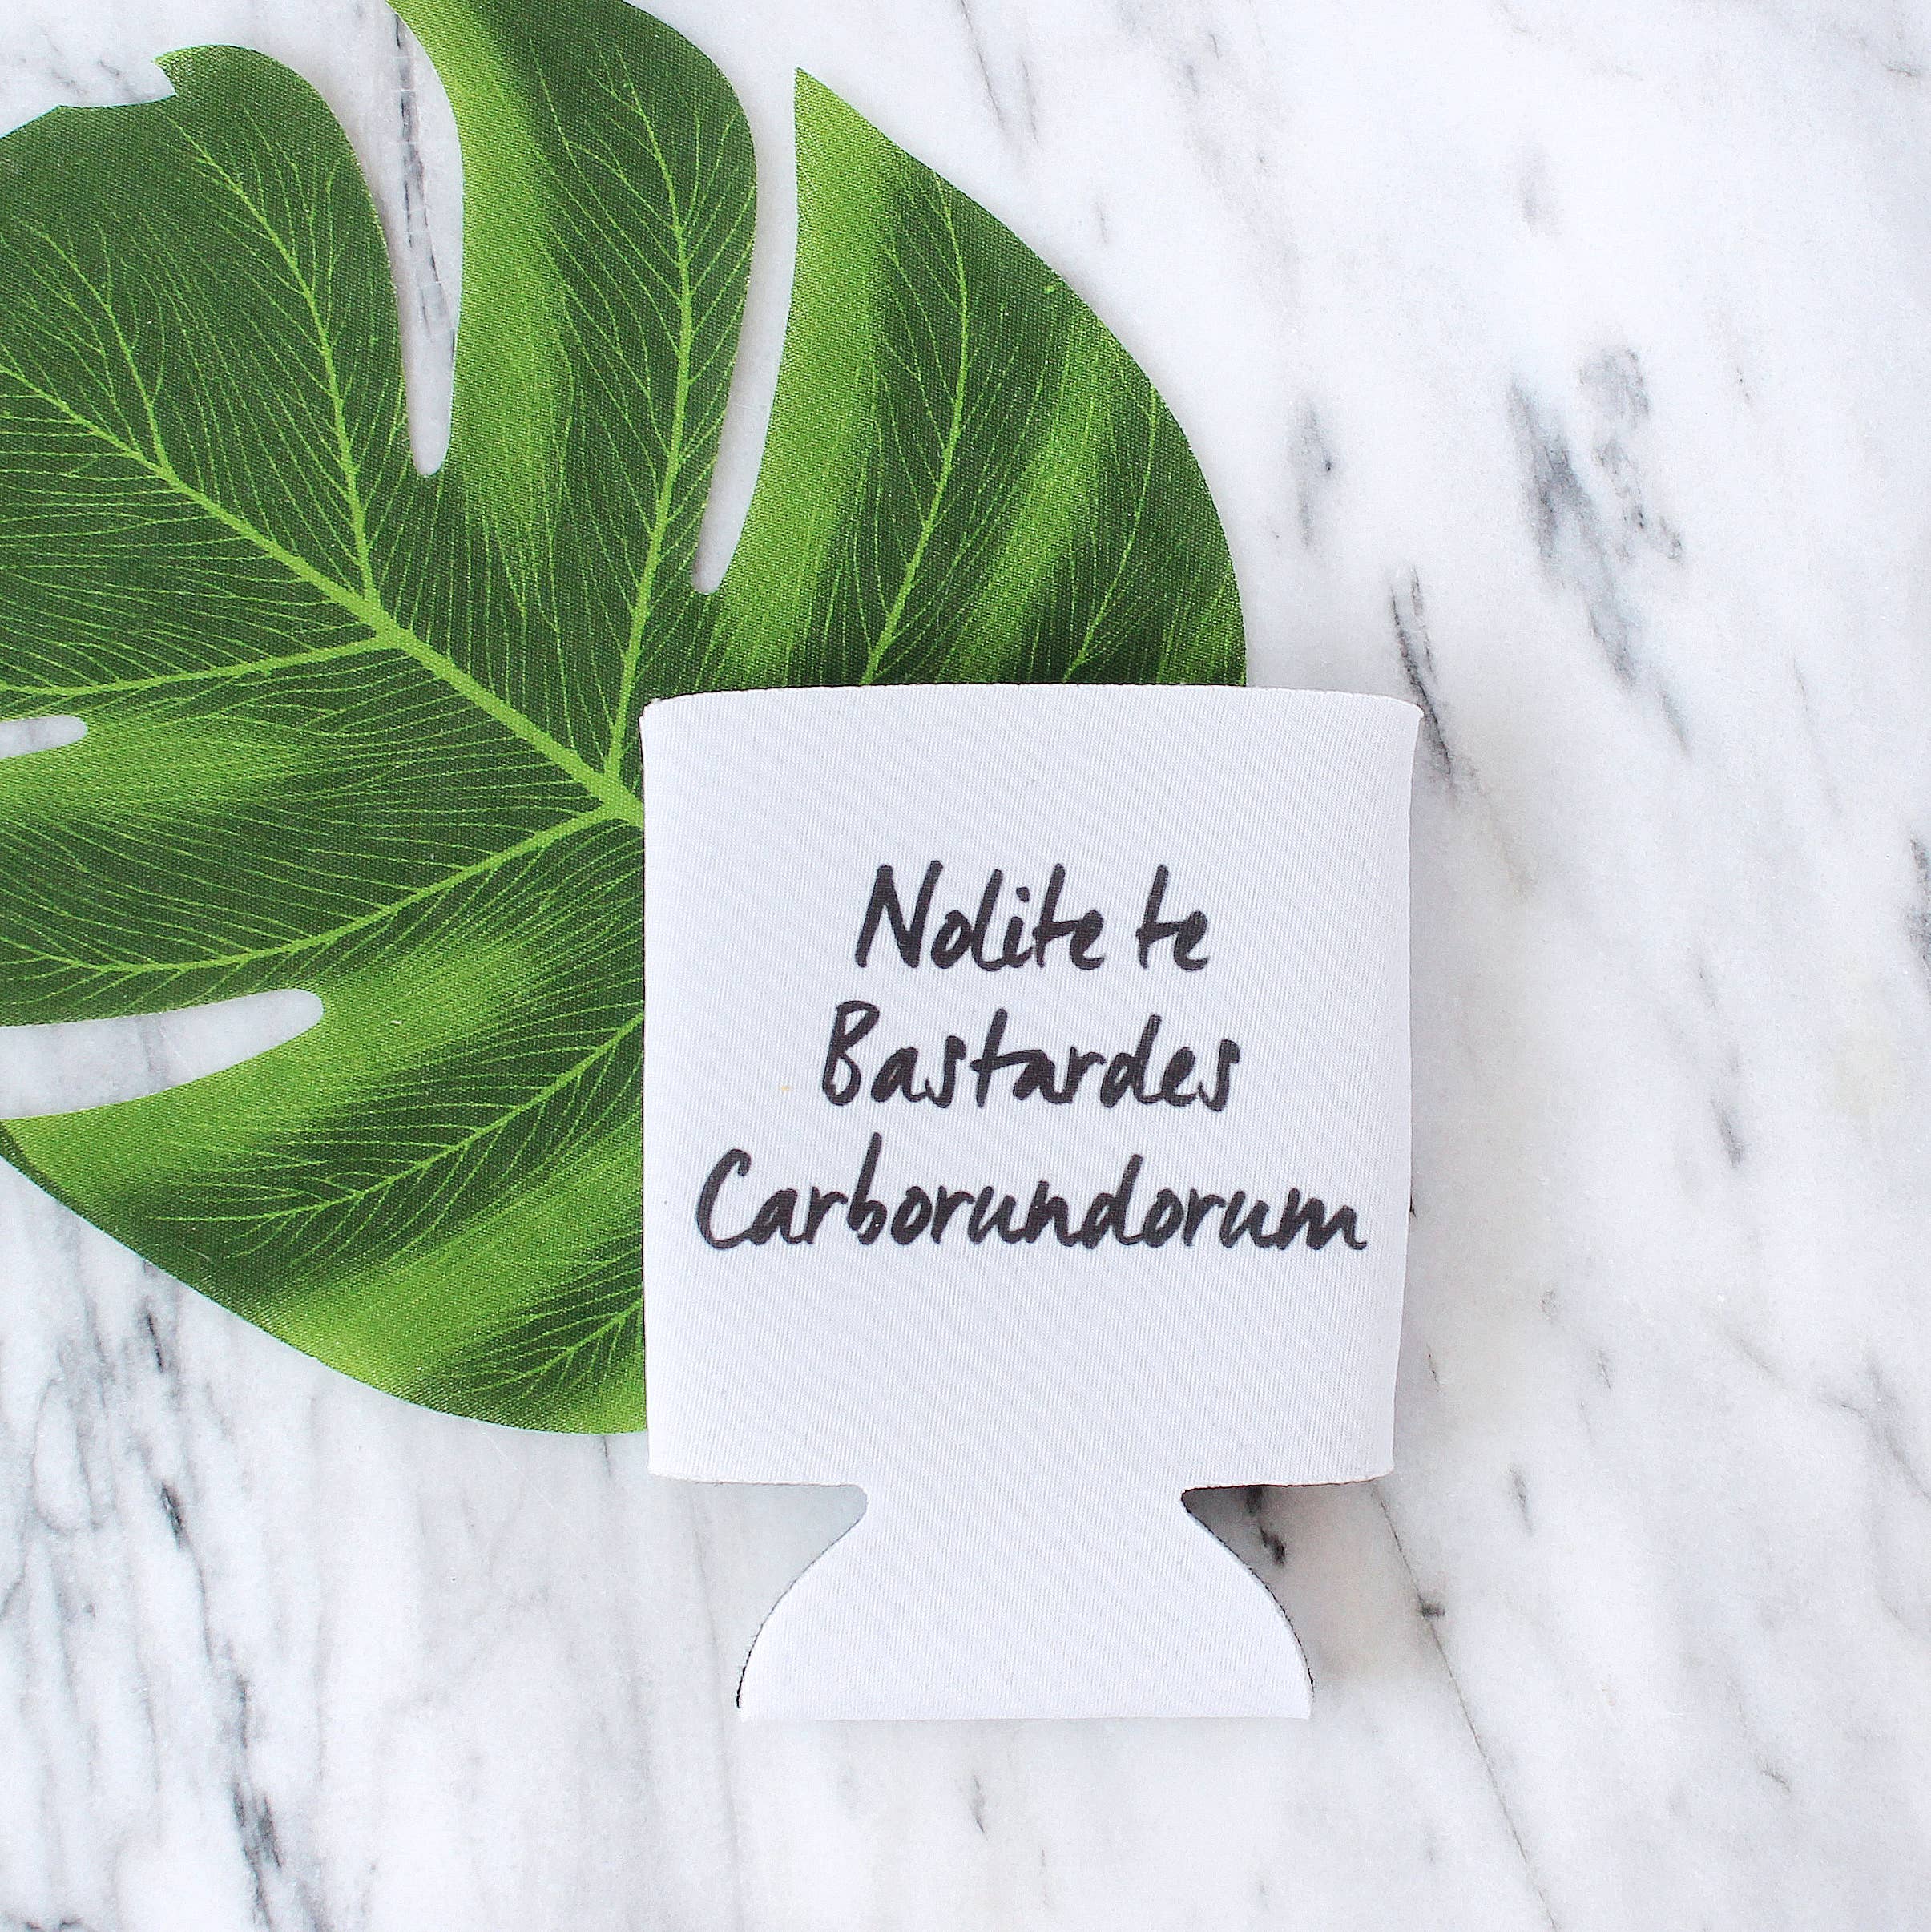 Nolite te
Bastardes
Carborundorum